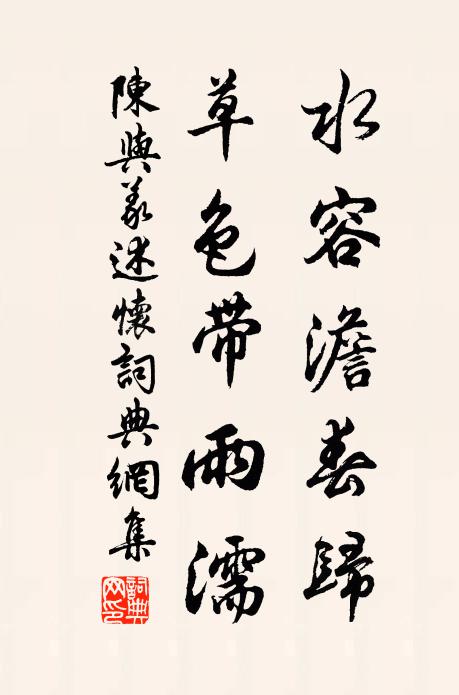 水容澹春歸
草色帶雨濡
陳與義述懷詞典網集
詞典网印